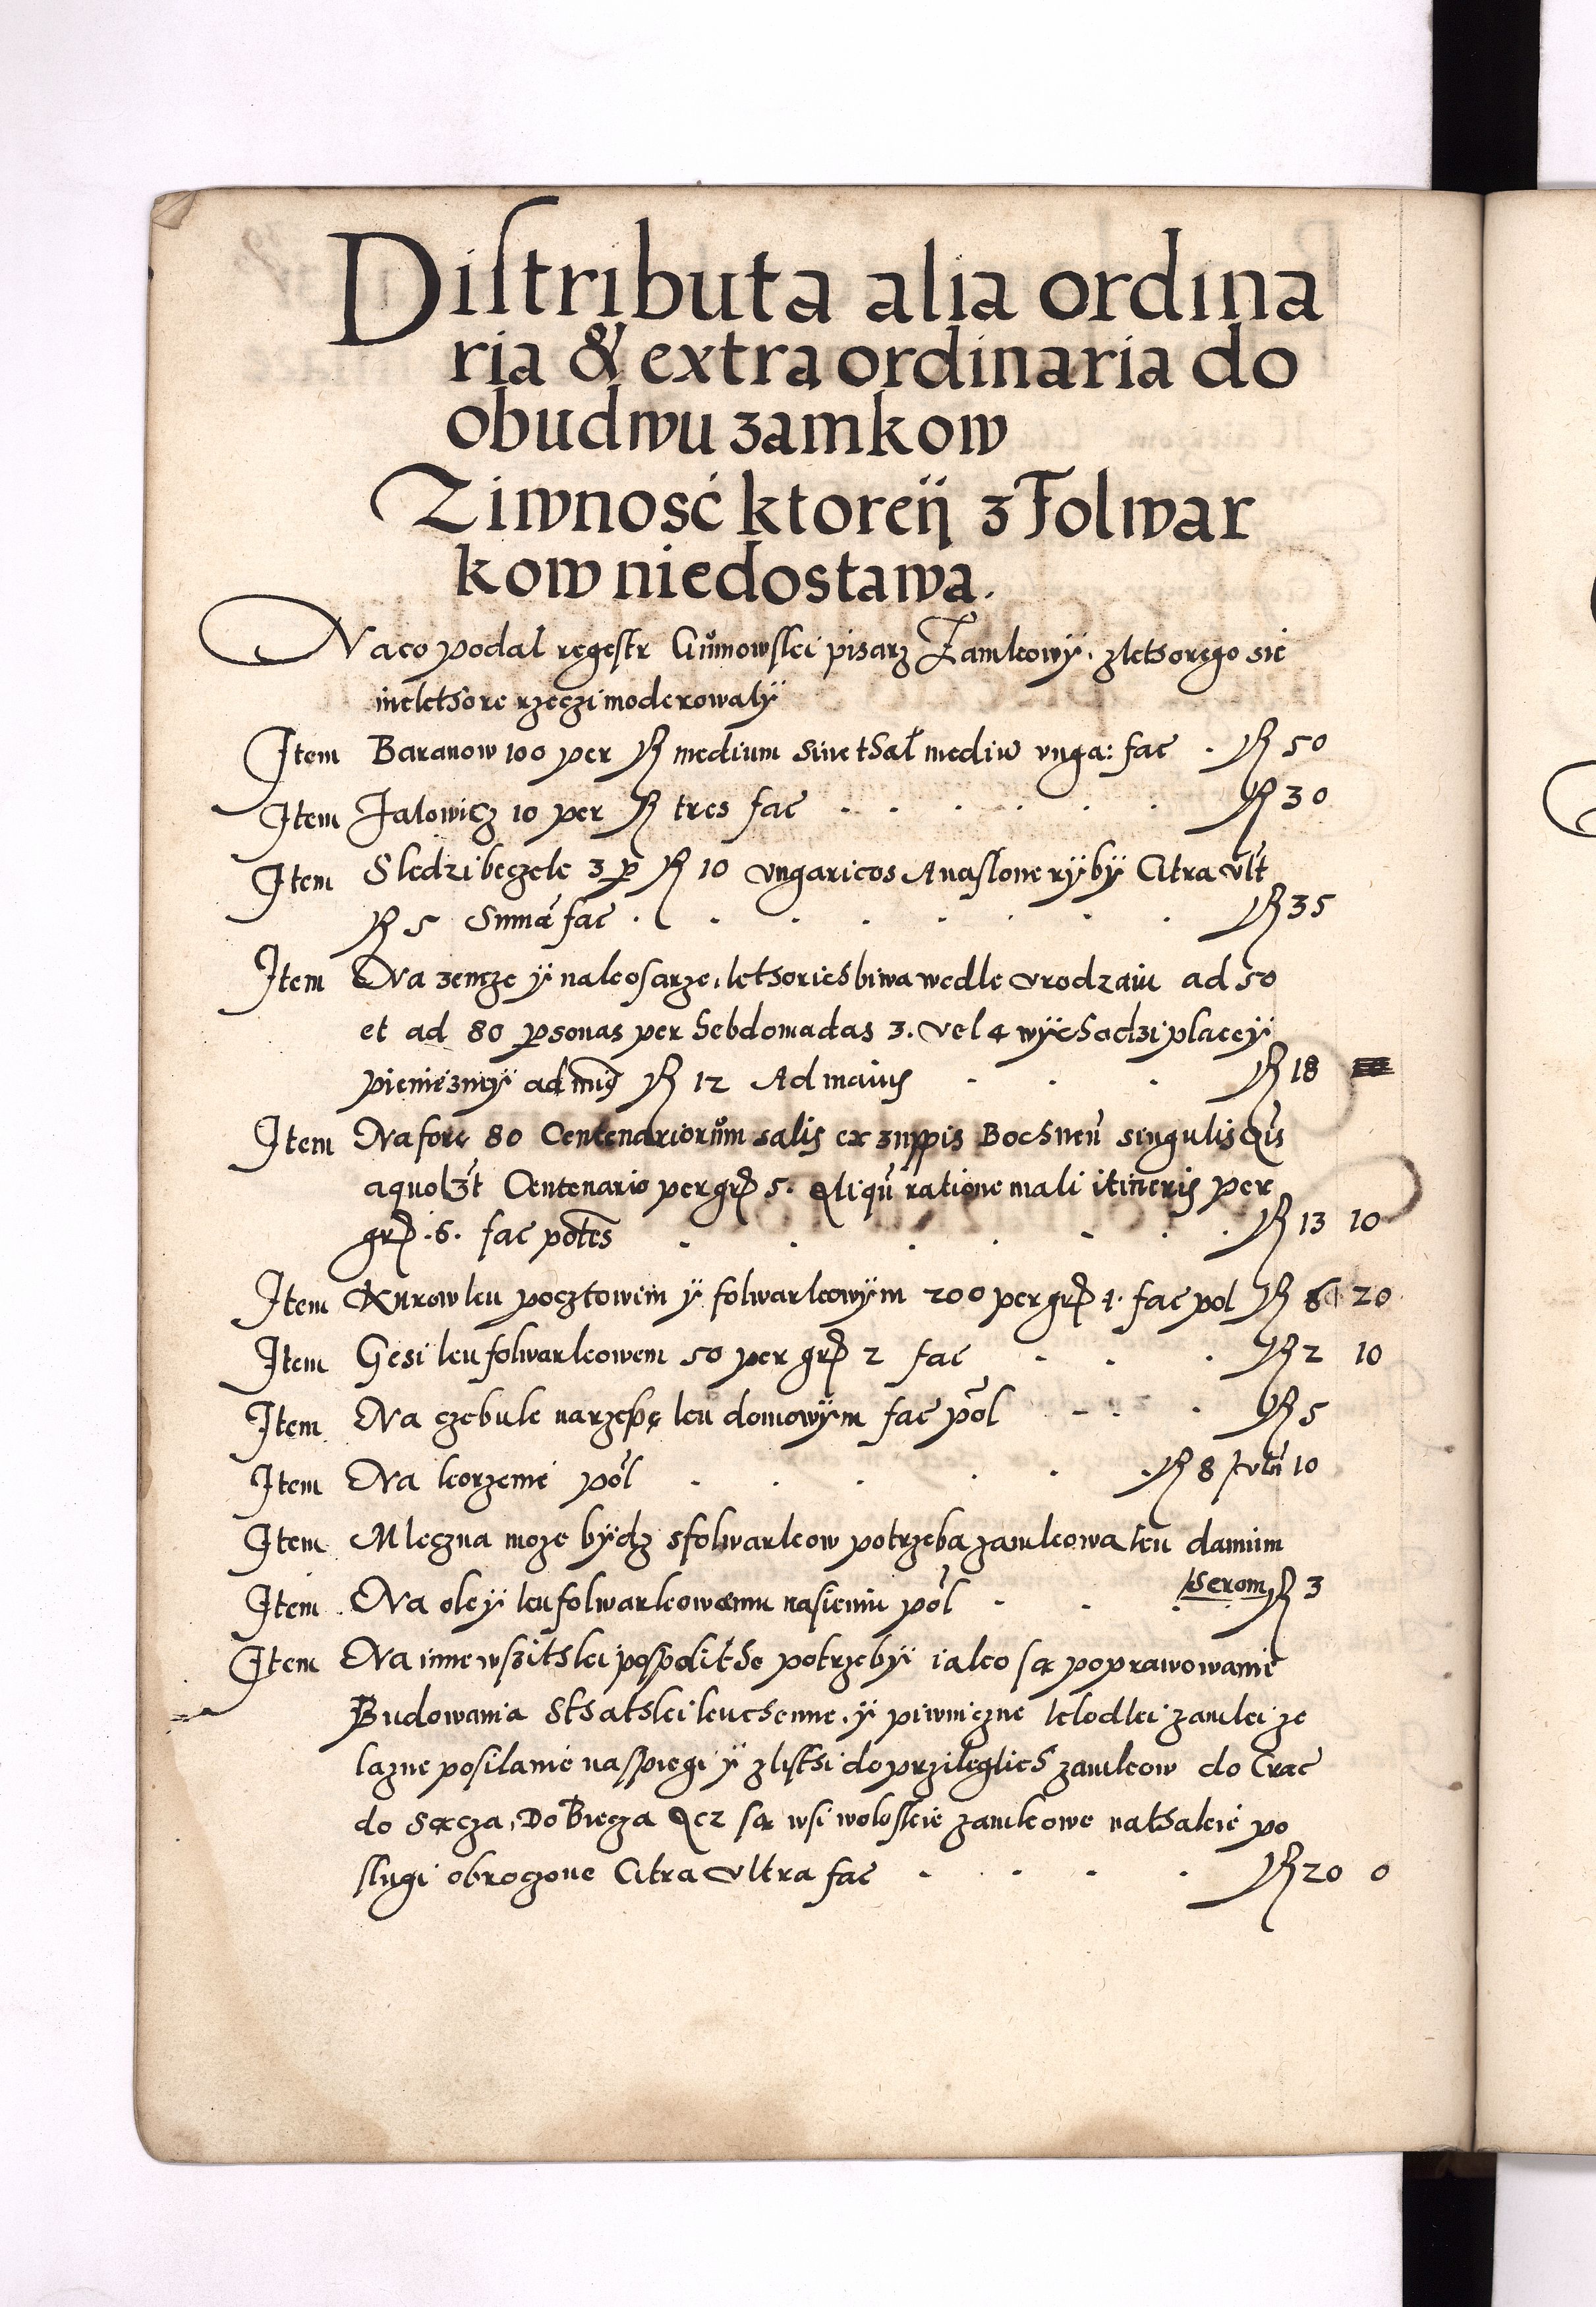 Distributa alia ordina
ria & extra ordinaria do
obudwu zamkow
Ziwnosć ktoreij z Folwar
kow niedostawa.
Na co podał regestr Gumowski pisarz Zamkowy, z ktorego sie
niektore rzeczi moderowały
Item Baranow 100 per ℟ medium sine thal mediū unga: fac ℟ 50
Item Jalowicz 10 per ℟ tres fac ℟ 30
Item Sledzi beczek 3 p ℟ 10 ungaricos A na slone ryby Citra ult
℟ 5 Sumā fac ℟ 35
Item Na zencze y na kosarze, ktorich biwa wedle urodzaiu ad 50
et ad 80 psonas per hebdomadas 3. vel 4 wychodzi placey
pieniezney ad ming ℟ 12 Ad maius ℟ 18
Item Na fore 80 Centenariorum salis ex zuppis Bochnen singulis
a quolzt Centenario per grꝭ 5. Aliqn ratione mali itineris per
grꝭ .6. fac potēs ℟ 13 10
Item Kurow ku pocztowem y folwarkowym 200 per grꝭ 1. fac pol ℟ 6 20
Item Gesi ku folwarkowem 50 per grꝭ 2 fac ℟ 2 10
Item Na czebule na rzepę ku domowym fac pōl ℟ 5
Item Na korzenie pōl ℟ 8 10
Item Mleczna moze bydz s folwarkow potrzeba zamkowa ku danim
serom
Item Na oley ku folwarkowemu nasieniu pōl ℟ 3
Item Na inne wszitski pospolithe potrzeby iako są poprawowanie
Budowania Sthatski kuchenne, y piwniczne klodki zamki ze
lazne posilanie na spiegi y z listhi do przileglich zamkow do Crac
do Sącza, Do Biecza Acz są wsi woloskie zamkowe na thakie po
slugi obroczone Citra Ultra fac ℟ 20 0